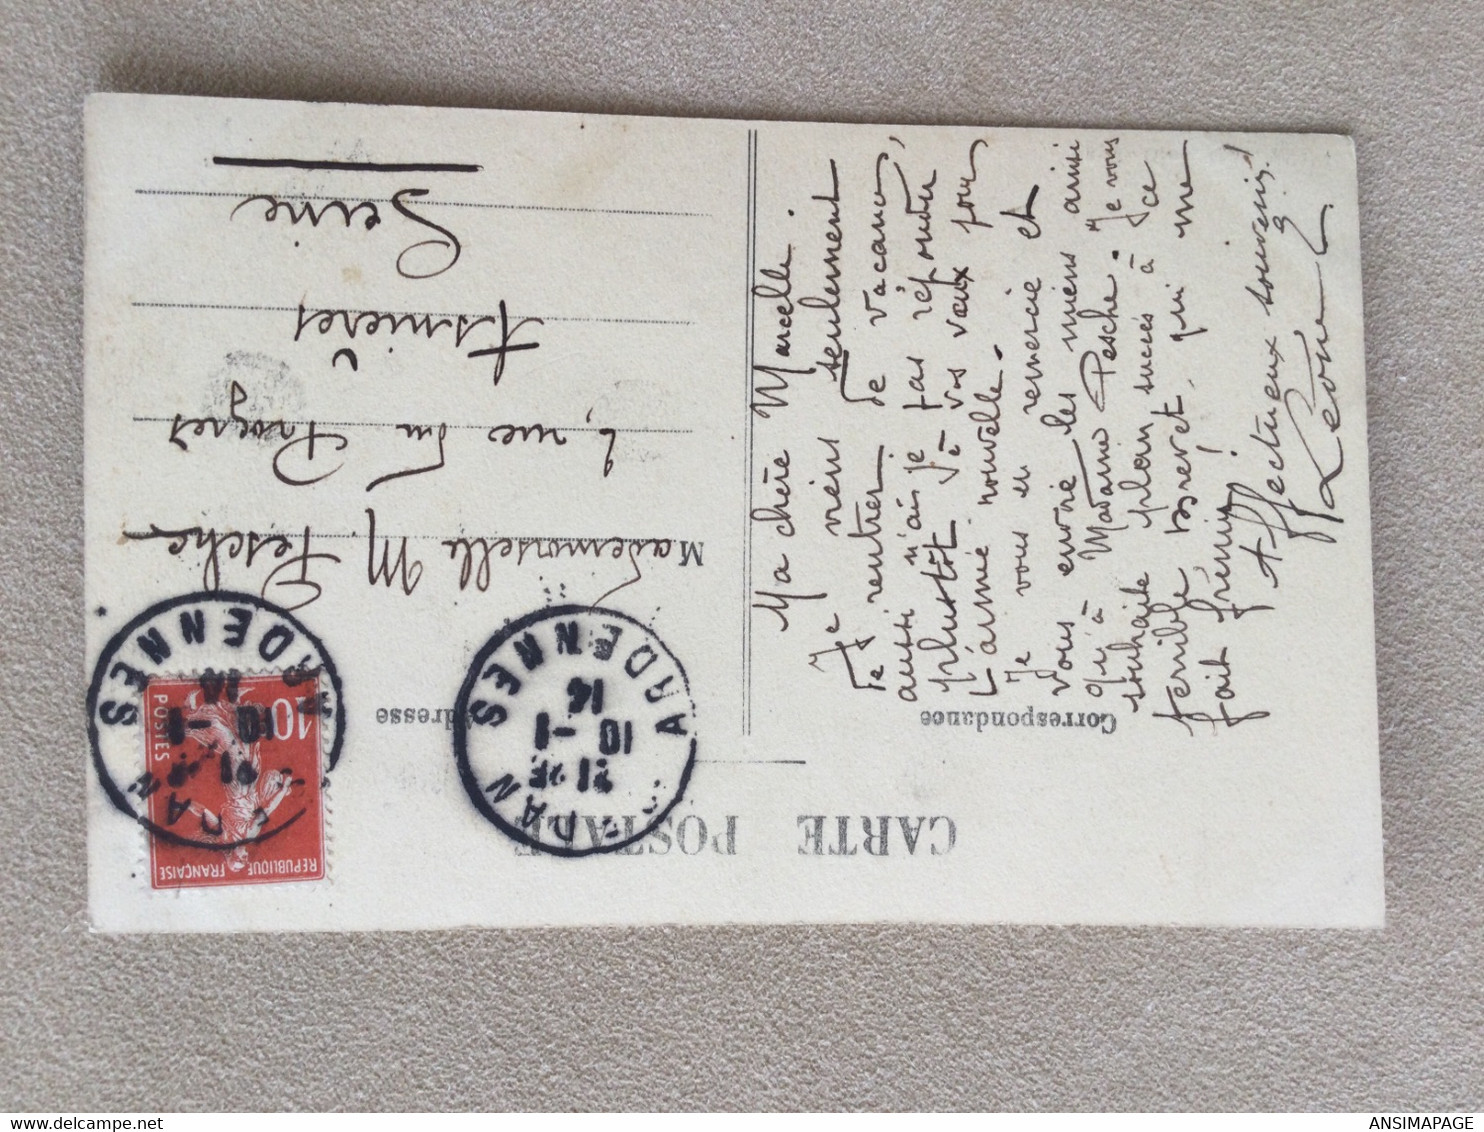 CARTE POSTALE
Correspondance
Adresse
Ma chère Marcelle.
Je viens seulement
de rentrer de vacances,
aussi n'ai je pas répondu
plustôt à vos vœux pour
L'année nouvelle.
Je vous en remercie et
vous envoie les miens ainsi
qu'à Madame Pesche. Je vous
souhaite plein succès à ce
terrible brevet qui me
fait frémir!
Affectueux souvenirs!
Léone
Mademoiselle M. Pesche
2, rue du Progrès
Asnières
Seine
SEDAN
ARDENNES
21 25
10 - 1
14
SEDAN
ARDENNES
21
10 - 1
14
10
POSTES
REPUBLIQUE FRANÇAISE
ANSIMAPAGE